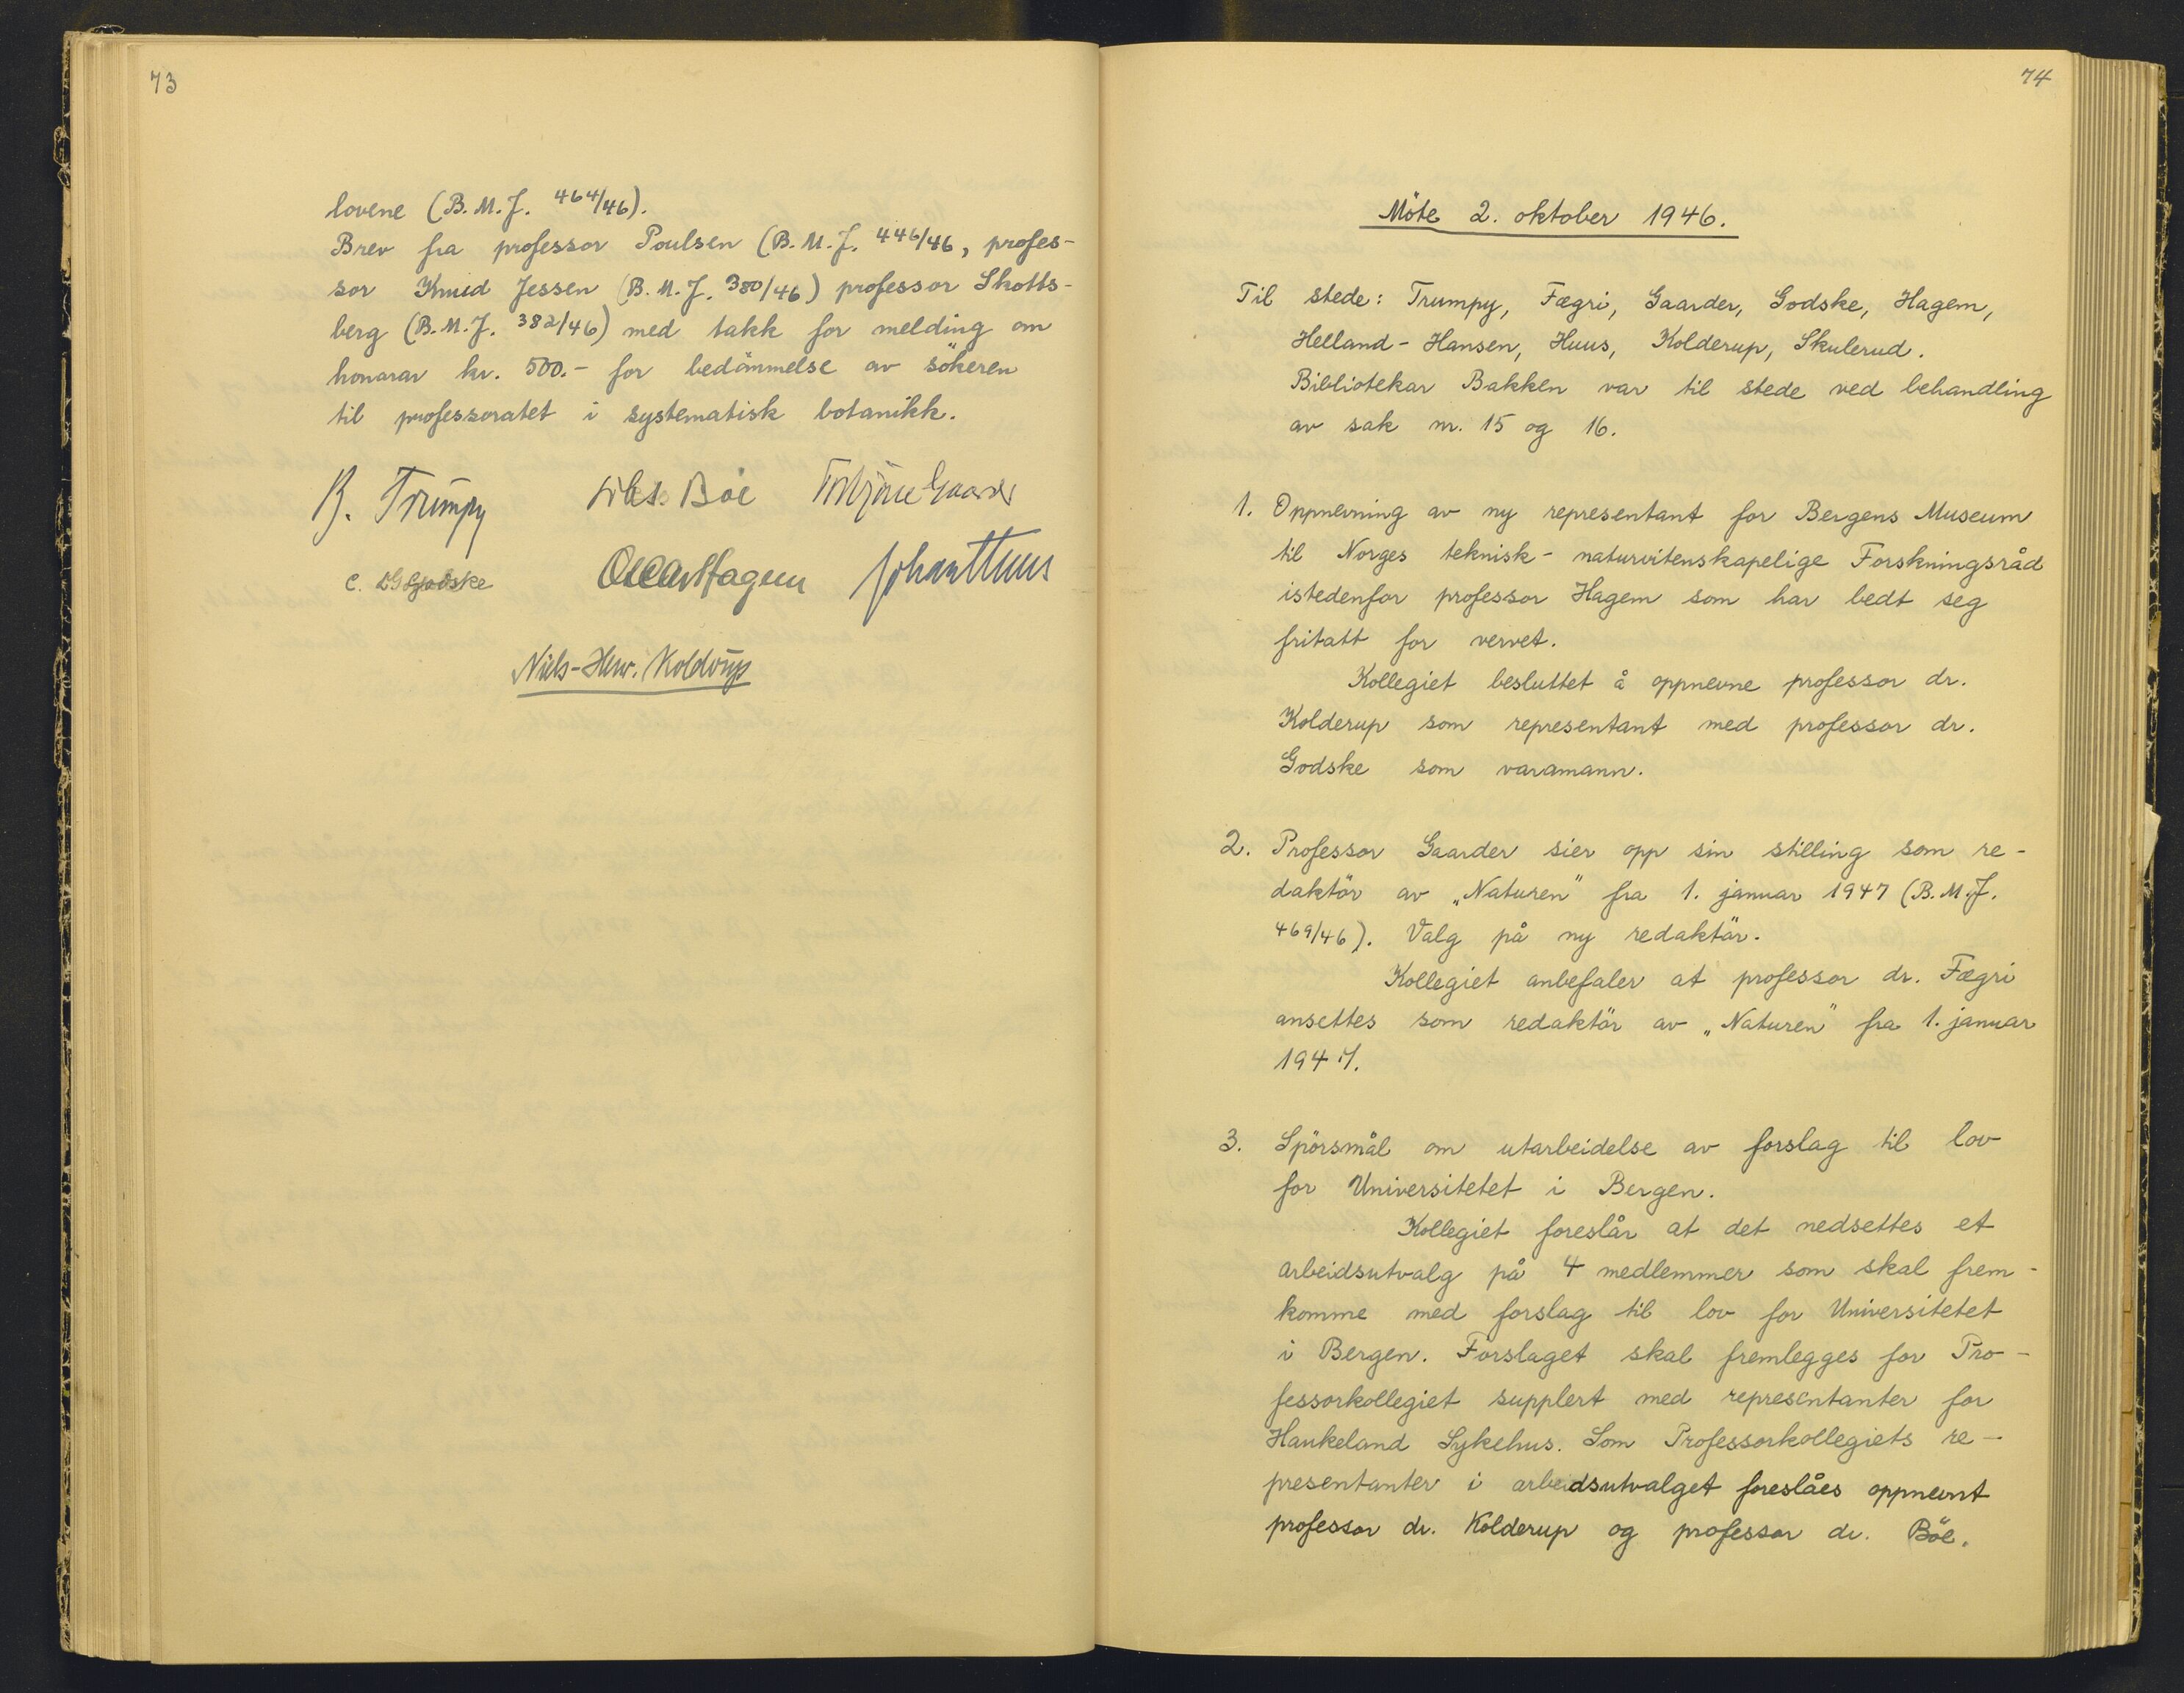 73
lovene (B.M.J. 464/46).
Brev fra professor Poulsen (B.M.J. 446/46, profes-
sor Knud Jessen (B.M.J. 380/46) professor Skotts-
berg (B.M.J. 382/46) med takk for melding om
honorar kr. 500.- for bedömmelse av sökeren
til professoratet i systematisk botanikk.
B. Trumpy Joh.s. Böe Torbjørn Gaarder
C. L. Godske Oscar Hagem Johan Huus
Niels-Henr. Kolderup
74
Möte 2. oktober 1946.
Til stede: Trumpy, Fægri, Gaarder, Godske, Hagem,
Helland-Hansen, Huus, Kolderup, Skulerud.
Bibliotekar Bakken var til stede ved behandling
av sak nr. 15 og 16.
1. Oppnevning av ny representant for Bergens Museum
til Norges teknisk-naturvitenskapelige Forskningsråd
istedenfor professor Hagem som har bedt seg
fritatt for vervet.
Kollegiet besluttet å oppnevne professor dr.
Kolderup som representant med professor dr.
Godske som varamann.
2. Professor Gaarder sier opp sin stilling som re-
daktör av „Naturen" fra 1. januar 1947 (B.M.J.
469/46). Valg på ny redaktör.
Kollegiet anbefaler at professor dr. Fægri
ansettes som redaktör av „Naturen" fra 1. januar
1947.
3. Spörsmål om utarbeidelse av forslag til lov
for Universitetet i Bergen.
Kollegiet foreslår at det nedsettes et
arbeidsutvalg på 4 medlemmer som skal frem-
komme med forslag til lov for Universitetet
i Bergen. Forslaget skal fremlegges for Pro-
fessorkollegiet supplert med representanter for
Haukeland Sykehus. Som Professorkollegiets re-
presentanter i arbeidsutvalget foreslåes oppnevnt
professor dr. Kolderup og professor dr. Böe.